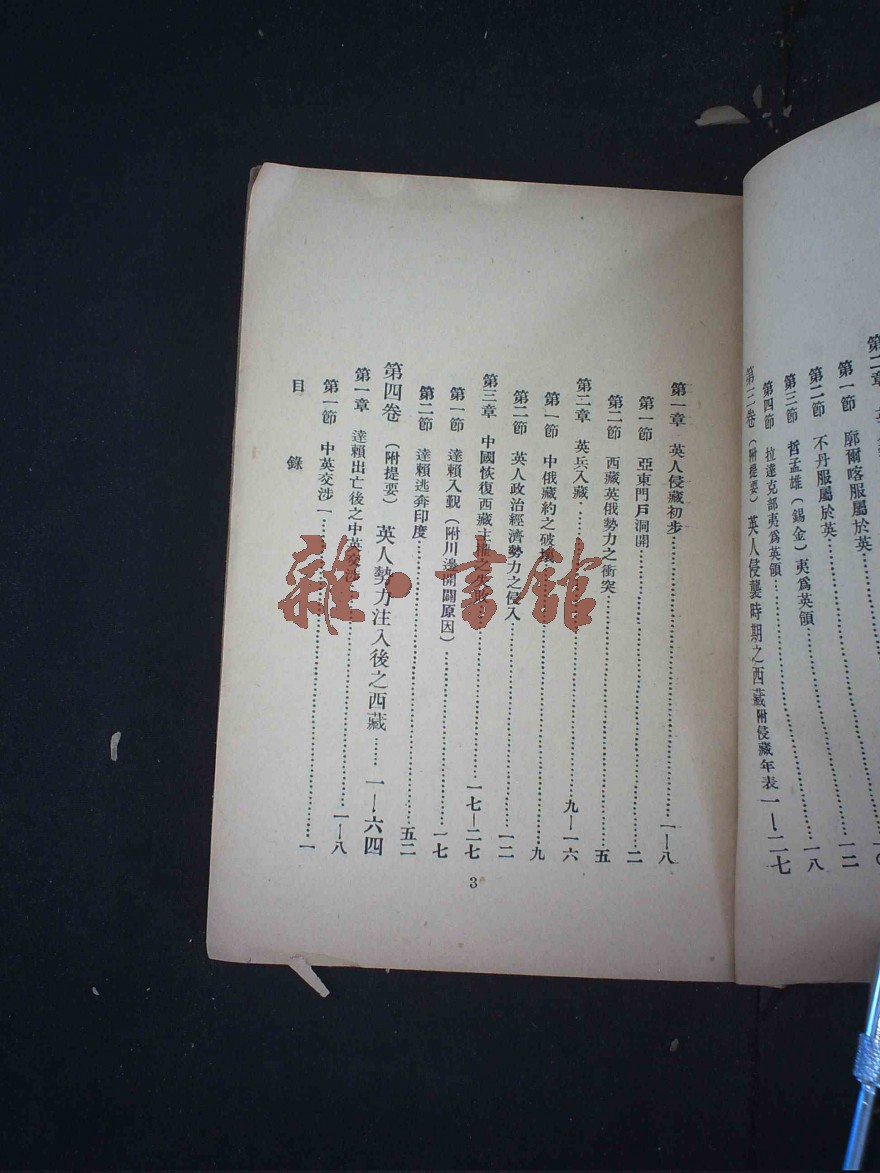 第一節 廓爾喀服屬於英
一二
第二節 不丹服屬於英
一八
第三節 哲孟雄（錫金）夷爲英領
第四節 拉達克部夷爲英領
第三卷（附提要）英人侵襲時期之西藏附侵藏年表 一—二七
第一章 英人侵藏初步 一—八
第一節 亞東門戶洞開 二
第二節 西藏英俄勢力之衝突 五
第二章 英兵入藏 九—一六
第一節 中俄藏約之破壞 九
第二節 英人政治經濟勢力之侵入 一二
第三章 中國恢復西藏主權之失敗 一七—二七
第一節 達賴入覲（附川邊開闢原因） 一七
第二節 達賴逃奔印度 五二
第四卷（附提要）英人勢力注入後之西藏 一—六四
第一章 達賴出亡後之中英交涉 一—八
第一節 中英交涉一 一
目錄
3
雜·書館